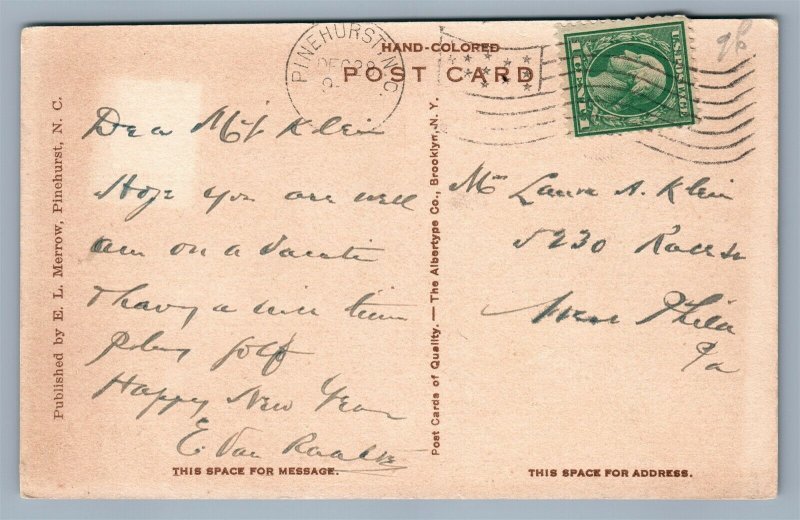 HAND-COLORED
POST CARD
PINEHURST N.C.
DEC 28
9
U.S. POSTAGE
1 CENT 1
Published by E. L. Merrow, Pinehurst, N. C.
Dear Mrs Klein
Hope you are well
am on a Vacati
+ having a nice time
play golf
Happy New Year
E. Van Raalte
THIS SPACE FOR MESSAGE.
Post Cards of Quality. — The Albertype Co., Brooklyn, N. Y.
Mrs Laura A. Klein
5230
West Phila
Pa
THIS SPACE FOR ADDRESS.